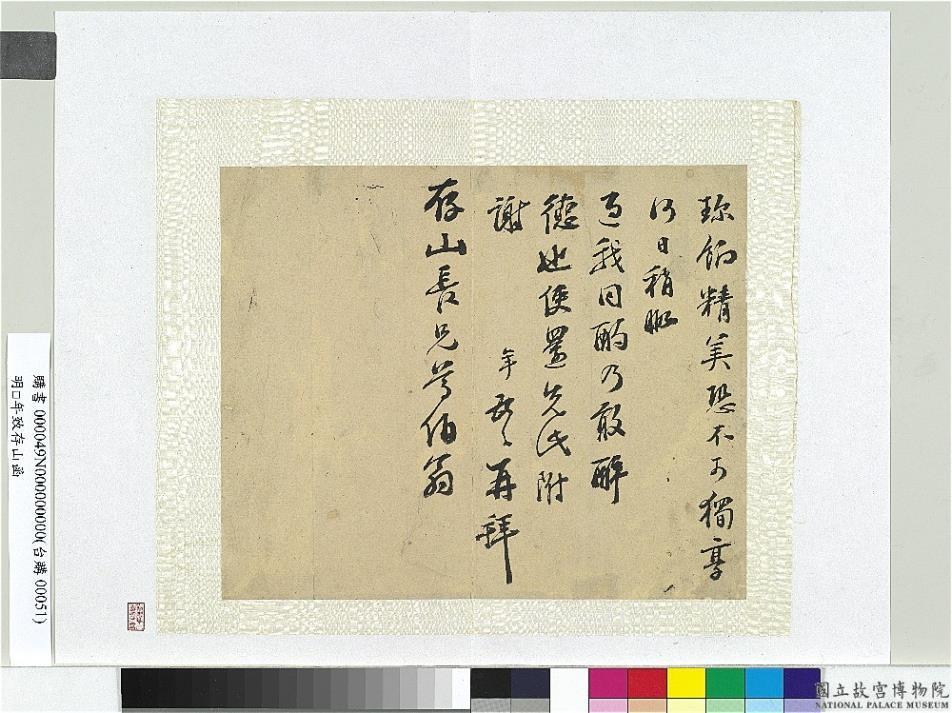 珍餉精美恐不可獨享
何日稍暇
過我同酌乃敢酬
德也使還先此附
謝
年 再拜
存山長兄尊伯翁
購書 000049N000000000(台購 00051)
明□年致存山函
國立故宮博物院
NATIONAL PALACE MUSEUM